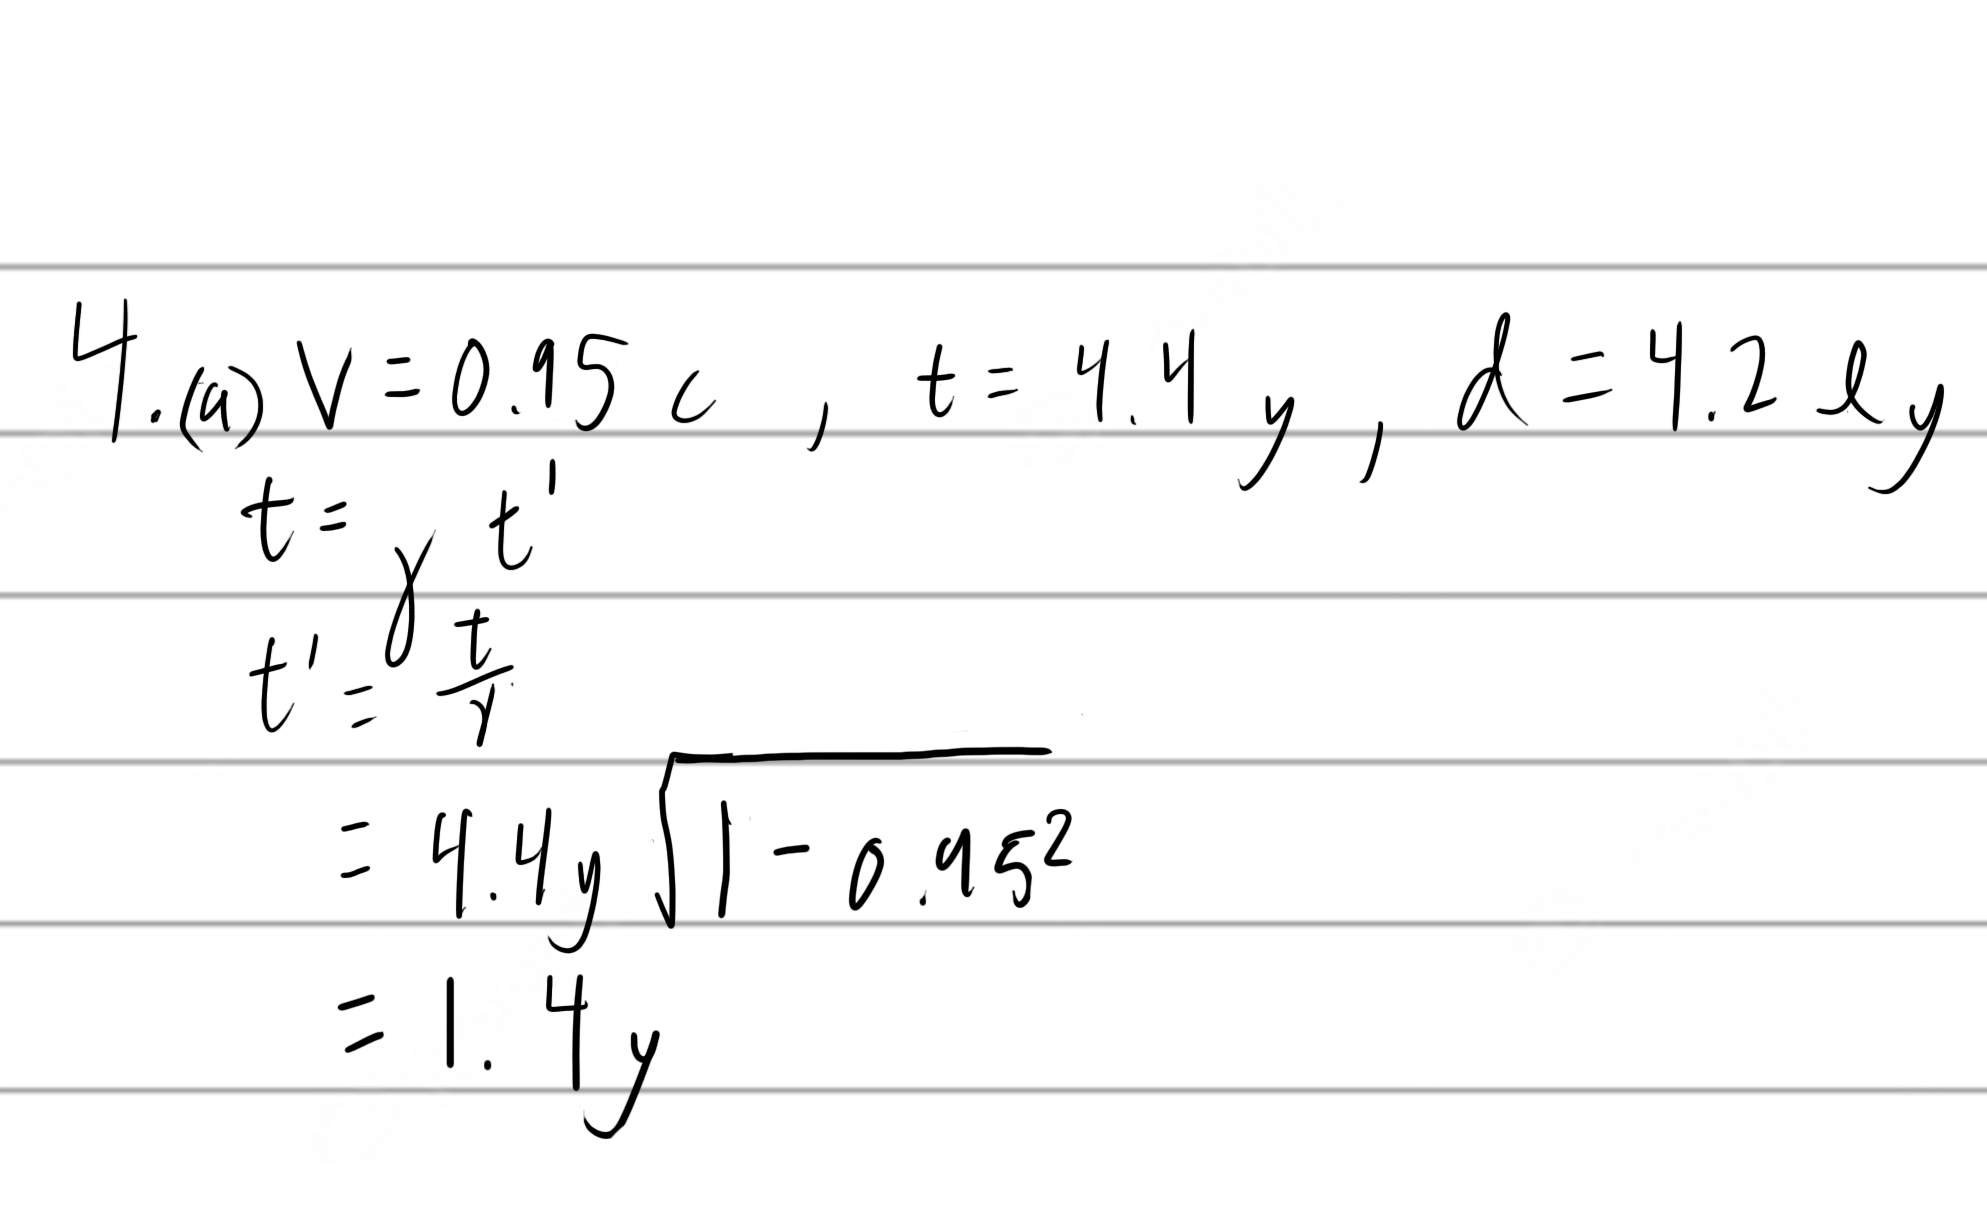 4.(a) V = 0.95 c , t = 4.4 y , d = 4.2 ly
t = γ t'
t' = t/γ
= 4.4y √1 - 0.95²
= 1.4y